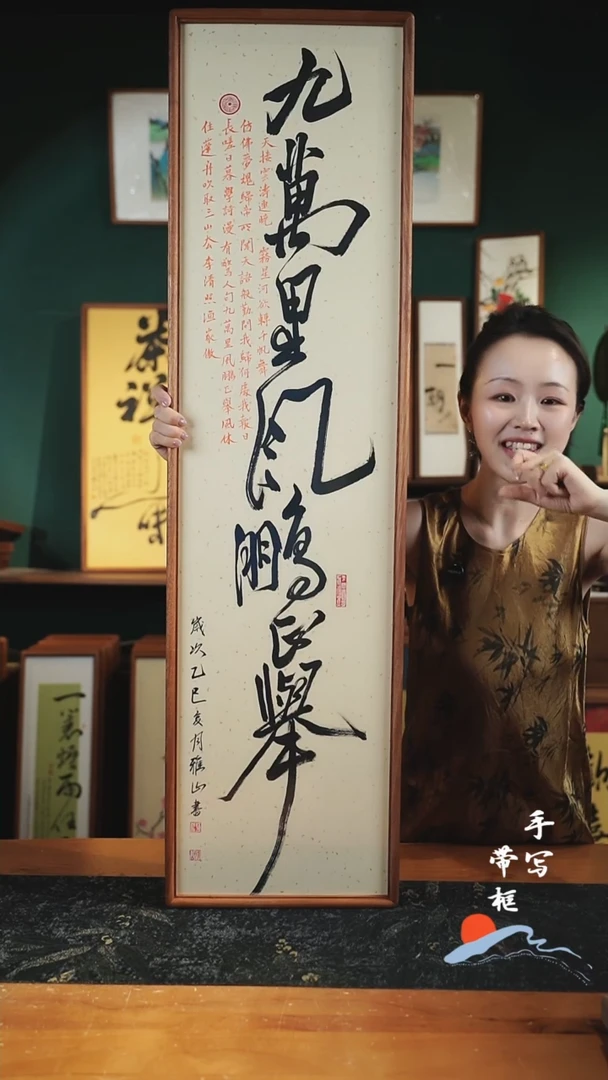 九萬里風鵬正舉
天接雲濤連曉霧星河欲轉千帆舞
仿佛夢魂歸帝所聞天語殷勤問我歸何處我報
長嗟日暮學詩謾有驚人句九萬里風鵬正舉風休
住蓬舟吹取三山去李清照漁家傲
歲次乙巳夏月雅山書
茶禅一味
一蓑煙雨任
手写
带框